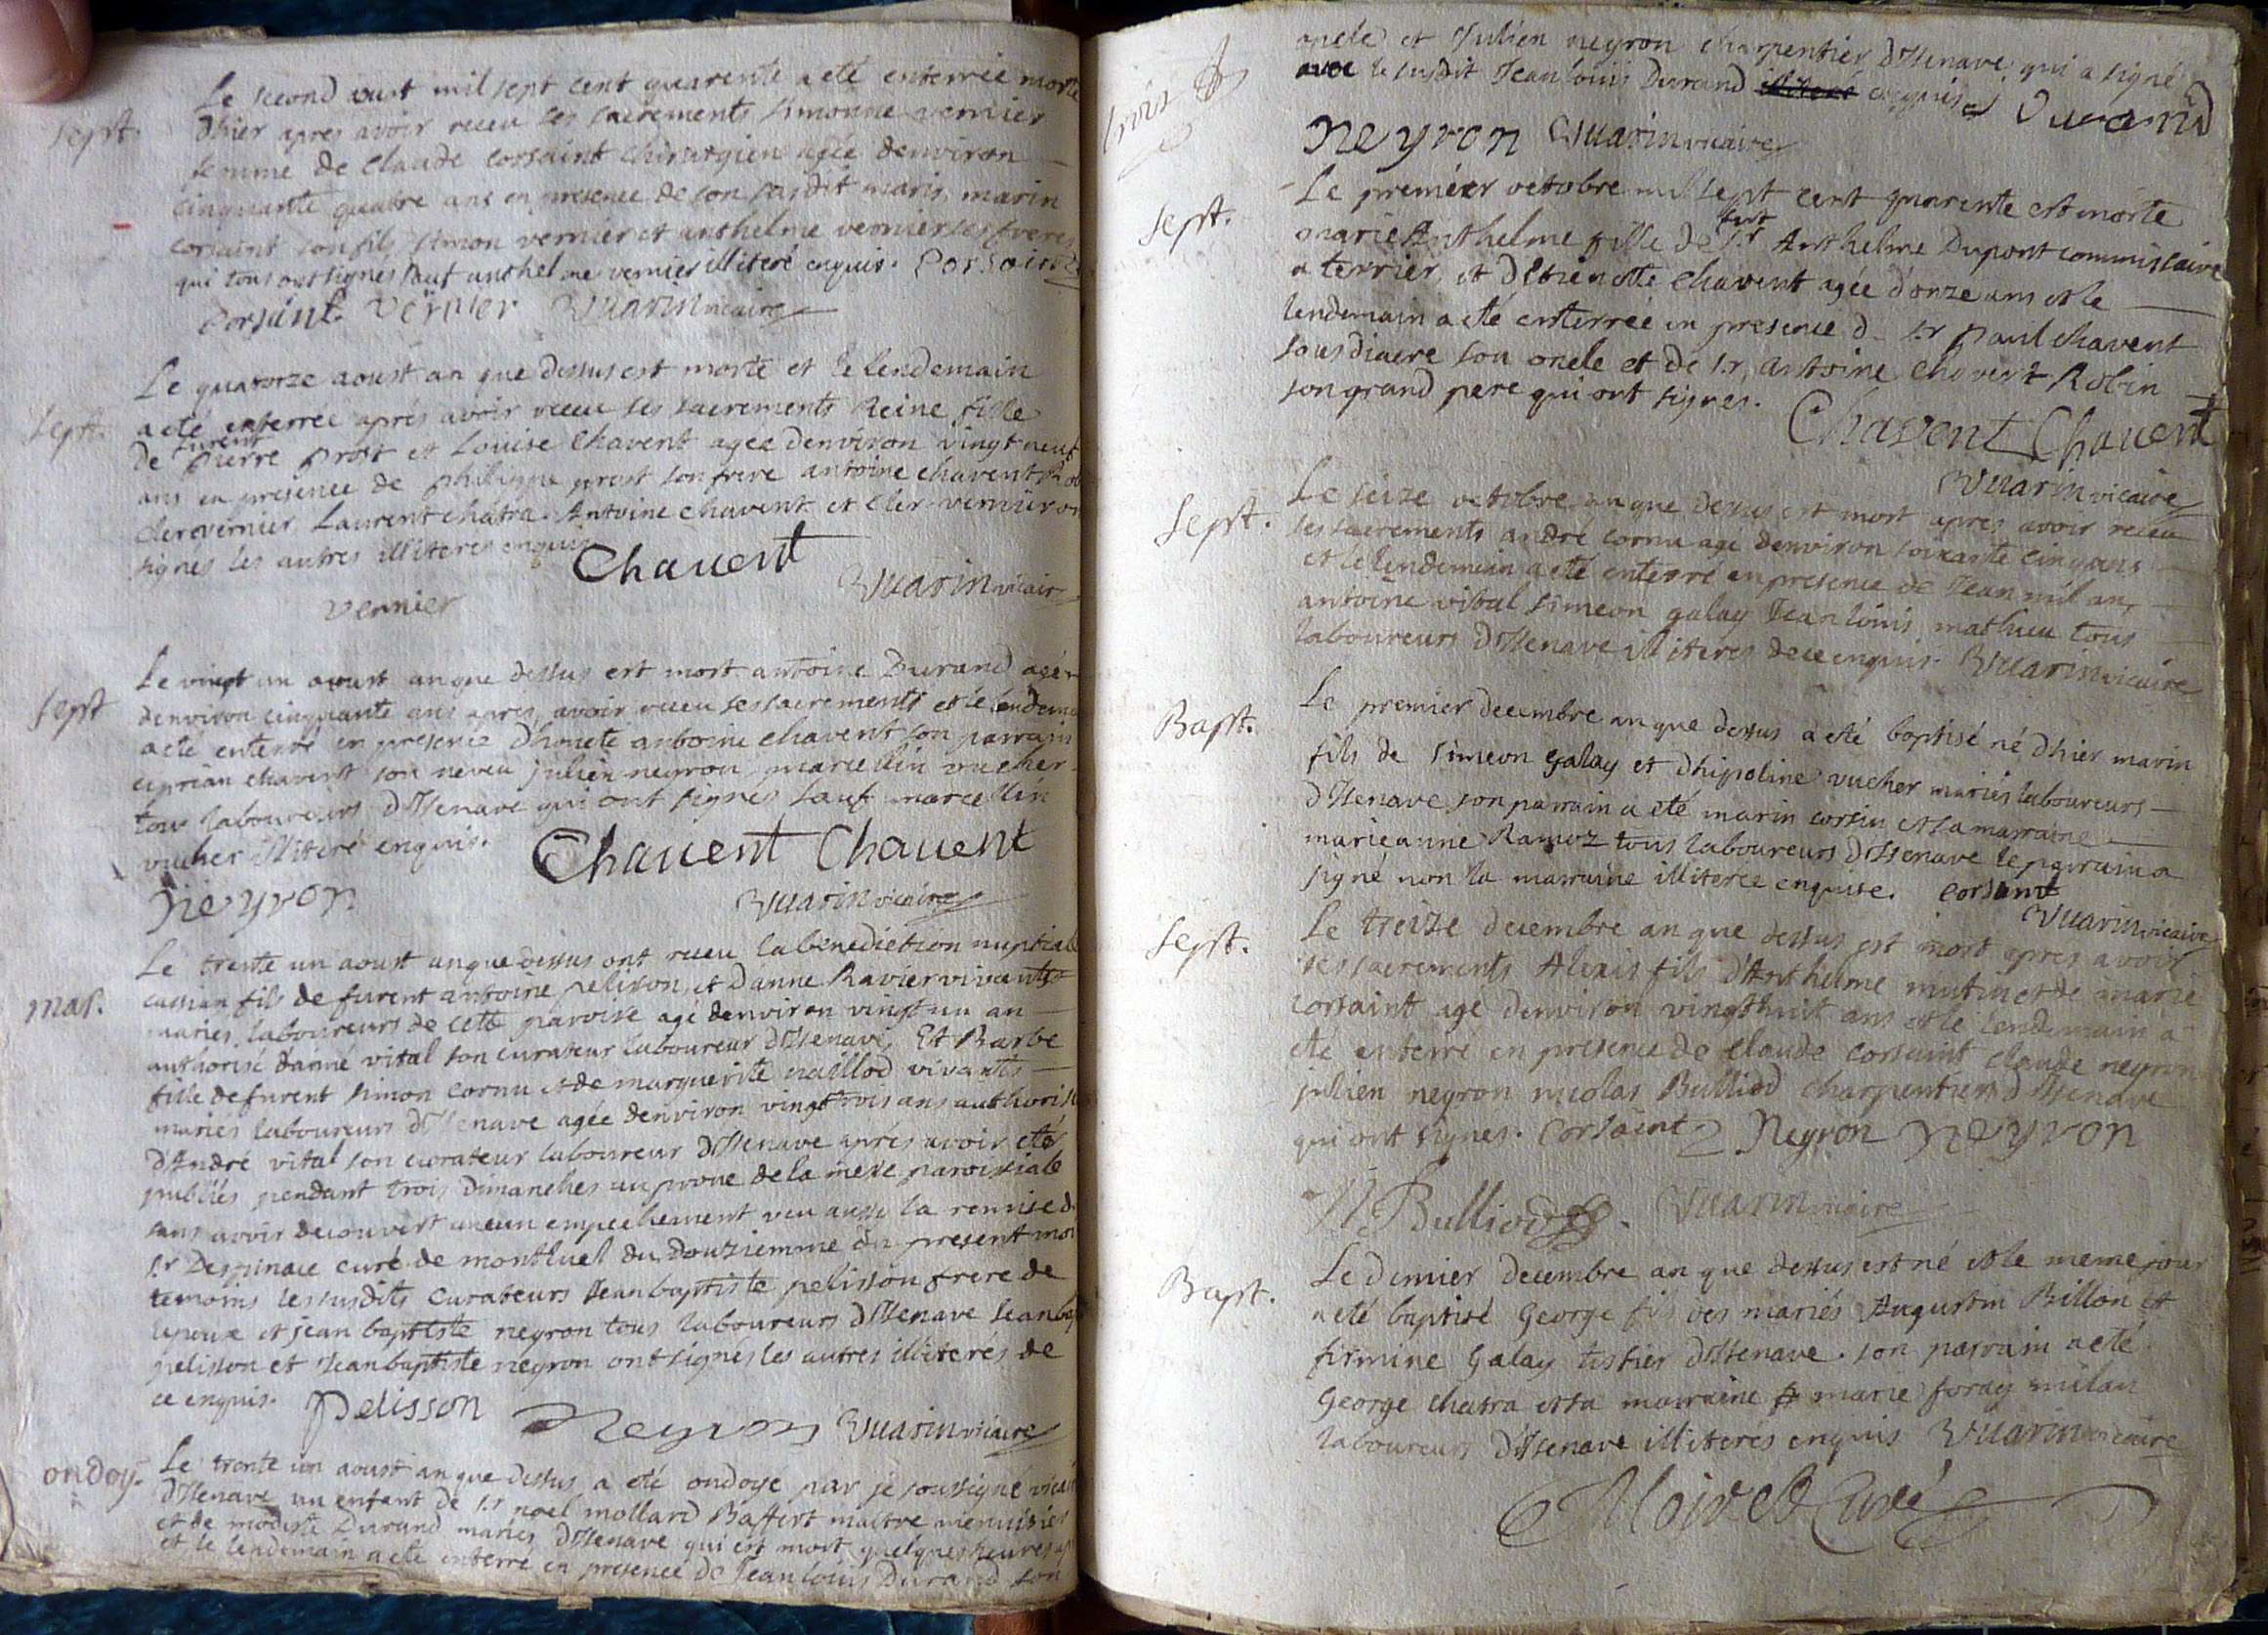 Sept.
Le second aust mil sept cent quarente a eté enterrée morte
dhier apres avoir receu ses sacrements simonne vernier
femme de claude corsaint chirurgien agée denviron
cinquante quatre ans en presence de son susdit maris, marin
corsaint son fils simon vernier et anthelme vernier ses freres
qui tous ont signes sauf anthelme vernier illiteré enquis. Corsaint
Corsaint Vernier Vuarin vicaire
Sept.
Le quatorze aoust an que dessus est morte et le lendemain
a eté enterrée aprés avoir receu ses sacrements Reine fille
de furent pierre prost et Louise Chavent agée denviron vingt neuf
ans en presence de philippe prost son frere antoine chavent Rob
cler vernier Laurent chatra. Antoine chavent et cler vernier on
signes les autres illiteres enquis
Chavent
Vuarin vicair
vernier
Sept
Le vingt un aoust an que dessus est mort antoine Durand agé
denviron cinquante ans apres avoir receu ses sacrements et le lendem
a eté enterré en presence dhonete antoine chavent son parrain
ciprian chavent son neveu julien negron marcellin vucher
tous laboureurs dIsenave qui ont signés sauf marcellin
vucher illiteré enquis.
Chavent Chavent
Neyron
Vuarin vicaire
mar.
Le trente un aoust an que dessus ont receu la benediction nuptiale
cassian fils de furent antoine pelison et danne Ravier vivants
mariés laboureurs de cette paroise agé denviron vingt un an
authorisé danné vital son curateur laboureur dIsenave, Et Barbe
fille de furent simon cornu et de marguerite naillod vivants
mariés laboureurs dIsenave agée denviron vingt trois ans authoris
dAndré vital son curateur laboureur dIsenave aprés avoir etés
publiés pendant trois dimanches au prone de la mese paroissiale
sans avoir decouvert aucun empechement veu ausse la remise d
s.r Despinace curé de montluel du douziemme du present moi
temoins les susdits curateurs Jean baptiste pelisson frere de
lepoux et jean baptiste negron tous laboureurs dIsenave Jean bap
pelisson et Jean baptiste negron ont signés les autres illiterés de
ce enquis.
Pelisson Neyron Vuarin vicaire
ondoy.
Le trente un aoust an que dessus a eté ondoyé par je soussigné vicai
dIsenave un enfant de s.r noel mollard Baffert maitre menuisier
et de modeste Durand mariés dIsenave qui est mort quelques heures ap
et le lendemain a eté enterré en presence de Jean louis Durand son
trois
oncle et Julien negron charpentier dIsenave qui a signé
avec le susdit Jean louis Durand enquis
Durand
Neyron Vuarin vicaire
Sept.
Le premier octobre mil sept cent quarente est morte
marie Anthelme fille de fut s.r Anthelme Dupont commissaire
a terrier, et dEtienette Chavent agée donze ans et le
lendemain a eté enterrée en presence d s.r paul chavent
sousdiacre son oncle et de s.r antoine chavent Robin
son grand pere qui ont signes.
Chavent Chavent
Vuarin vicaire
Sept.
Le seize octobre an que dessus est mort apres avoir receu
ses sacrements andré cornu agé denviron soixante cinq ans
et le lendemain a eté enterré en presence de Jean milan,
antoine vital simeon galay Jean louis mathieu tous
laboureurs dIsenave illiteres de ce enquis. Vuarin vicaire
Bapt.
Le premier decembre an que dessus a eté baptisé né dhier marin
fils de simeon galay et dhipoline vucher mariés laboureurs
dIsenave son parrain a eté marin corsin et sa marraine
marieanne Ramoz tous laboureurs dIsenave le parrain a
signé non la marraine illiterée enquise. Corsaint
Vuarin vicaire
Sept.
Le treize decembre an que dessus est mort apres avoir
ses sacrements Alexis fils d'Anthelme mutin et de marie
corsaint agé denviron vingt huit ans et le lendemain a
eté enterré en presence de claude corsaint claude negron
julien negron nicolas Bulliod charpentiers dIsenave
qui ont signes. Corsaint Neyron Neyron
N. Bulliod Vuarin vicaire
Bapt.
Le dernier decembre an que dessus est né et le meme jour
a eté baptisé George fils des mariés Augustin Billon et
firmine Galay tissier dIsenave. son parrain a eté
George chatra et sa marraine marie foray milan
laboureurs dIsenave illiterés enquis Vuarin vicaire
Curé